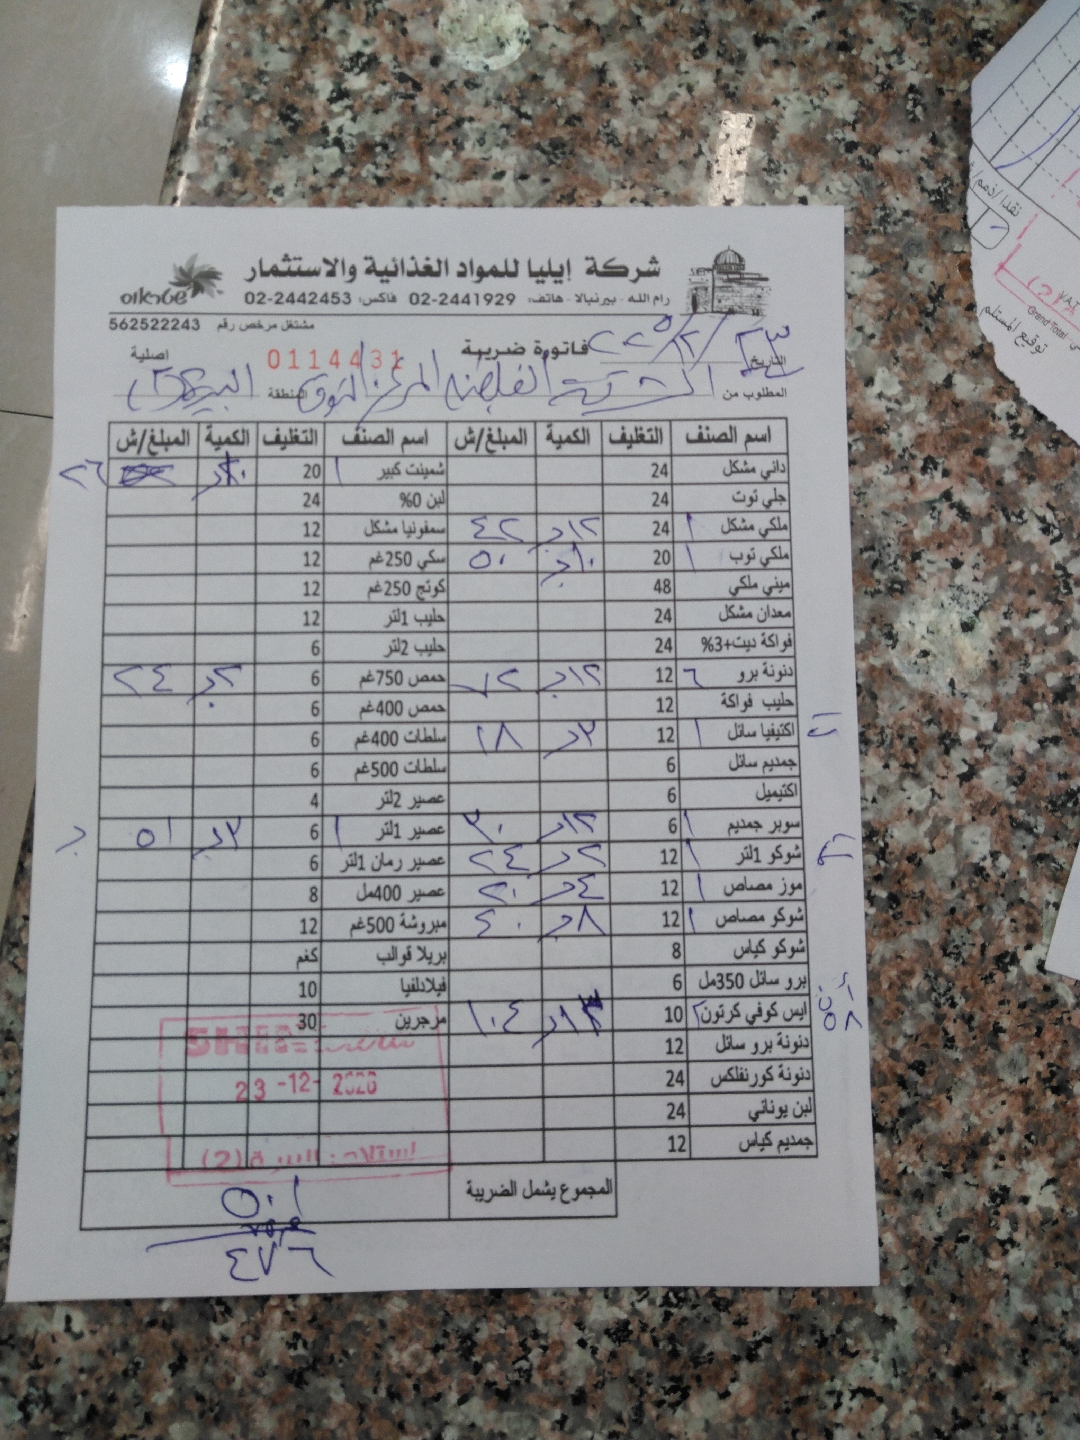 شركة إيليا للمواد الغذائية والاستثمار
رام الله - بيرنبالا - هاتف: 02-2441929 فاكس: 02-2442453
مشتغل مرخص رقم 562522243
فاتورة ضريبة
0114431 اصلية
التاريخ
المطلوب من المنطقة
اسم الصنف التغليف الكمية المبلغ/ش اسم الصنف التغليف الكمية المبلغ/ش
داني مشكل 24 شمينت كبير 20 ٢٦
جلي توت 24 لبن 0% 24
ملكي مشكل 24 ١٢ ٤٢ سمفونيا مشكل 12
ملكي توب 20 ١٠ ٥٠ سكي 250غم 12
ميني ملكي 48 كوتج 250غم 12
معدان مشكل 24 حليب 1لتر 12
فواكة ديت+3% 24 حليب 2لتر 6
دنونة برو ٦ 12 ١٢ حمص 750غم 6 ٢ ٢٤
حليب فواكة 12 حمص 400غم 6
اكتيفيا سائل 12 ٣ ١٨ سلطات 400غم 6
جمديم سائل 6 سلطات 500غم 6
اكتيميل 6 عصير 2لتر 4
سوبر جمديم 6 ١٢ ٣٠ عصير 1لتر 6 ٣ ٥١
شوكو 1لتر 12 ٢ ٢٤ عصير رمان 1لتر 6
موز مصاص 12 ٤ ٢٠ عصير 400مل 8
شوكو مصاص 12 ٨ ٤٠ مبروشة 500غم 12
شوكو كياس 8 بريلا قوالب كغم
برو سائل 350مل 6 فيلادلفيا 10
ايس كوفي كرتون ٢ 10 ١٠٤ مرجرين 30
دنونة برو سائل 12
دنونة كورنفلكس 24
لبن يوناني 24
جمديم كياس 12
23 -12- 2020
(2)
المجموع يشمل الضريبة ٥٠١
٤٧٦
نقدا / ذمم
Grand Total
توقيع المستلم